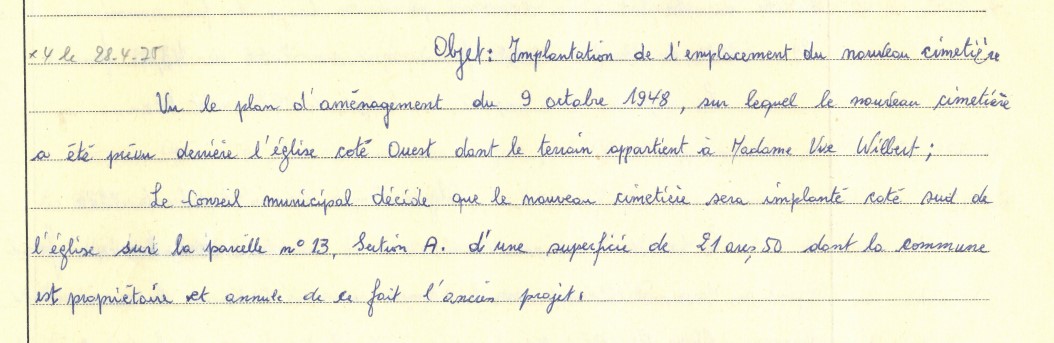 x 4 le 28.4.75 Objet: Implantation de l'emplacement du nouveau cimetière
Vu le plan d'aménagement du 9 octobre 1948, sur lequel le nouveau cimetière
a été prévu derrière l'église coté Ouest dont le terrain appartient à Madame Vve Wilbert;
Le Conseil municipal décide que le nouveau cimetière sera implanté coté sud de
l'église sur la parcelle n° 13, Section A. d'une superficie de 21 ares,50 dont la commune
est propriétaire et annule de ce fait l'ancien projet.